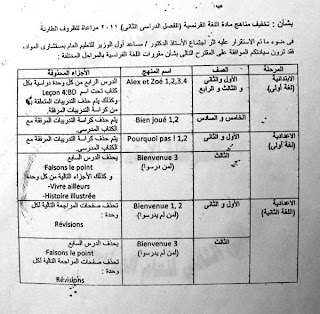 بشأن : تخفيف مناهج مادة اللغة الفرنسية (الفصل الدراسى الثانى) ٢٠١١ مراعاة للظروف الطارئة
فى ضوء ما تم الاستقرار عليه اثر اجتماع الأستاذ الدكتور / مساعد أول الوزير للتعليم العام بمستشارى المواد،
فقد ترون سيادتكم الموافقة على المقترح التالى بشأن مقررات اللغة الفرنسية بالمراحل المختلفة .
المرحلة الصف اسم المنهج الأجزاء المحذوفة
الابتدائية (لغة أولى)
الأول والثانى و الثالث و الرابع
Alex et Zoé 1,2,3,4
الدرس الرابع من كل وحدة دراسية بكل
كتاب تحت اسم Leçon 4:BD
وكذلك يتم حذف التدريبات المتعلقة
من كراسة التدريبات المرفقة.
الخامس و السادس
Bien joué 1,2
يتم حذف كراسة التدريبات المرفقة مع
الكتاب المدرسى.
الاعدادية (لغة أولى)
الأول و الثانى
Pourquoi pas ! 1,2
يتم حذف كراسة التدريبات المرفقة مع
الكتاب المدرسى.
الثالث
Bienvenue 3
(لمن درسوا)
يحذف الدرس السابع
Faisons le point
و كذلك الأجزاء التالية من كل وحدة:
-Vivre ailleurs
-Histoire illustrée
الاعدادية (اللغة الثانية)
الأول و الثانى
Bienvenue 1,2
(لمن لم يدرسوا)
تحذف صفحات المراجعة التالية لكل
وحدة :
Révisions
الثالث
Bienvenue 3
(لمن لم يدرسوا)
يحذف الدرس السابع
Faisons le point
تحذف صفحات المراجعة التالية لكل
وحدة :
Révisions